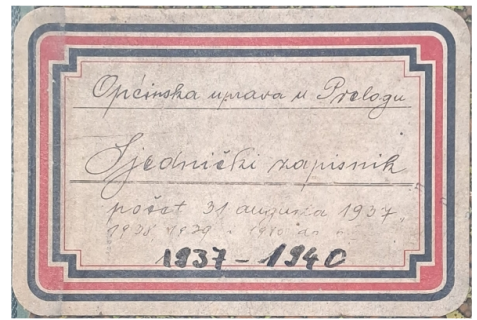 Općinska uprava u Prelogu
Sjednički zapisnik
počet 31 augusta 1937.
1938 1939 i 1940
1937 - 1940